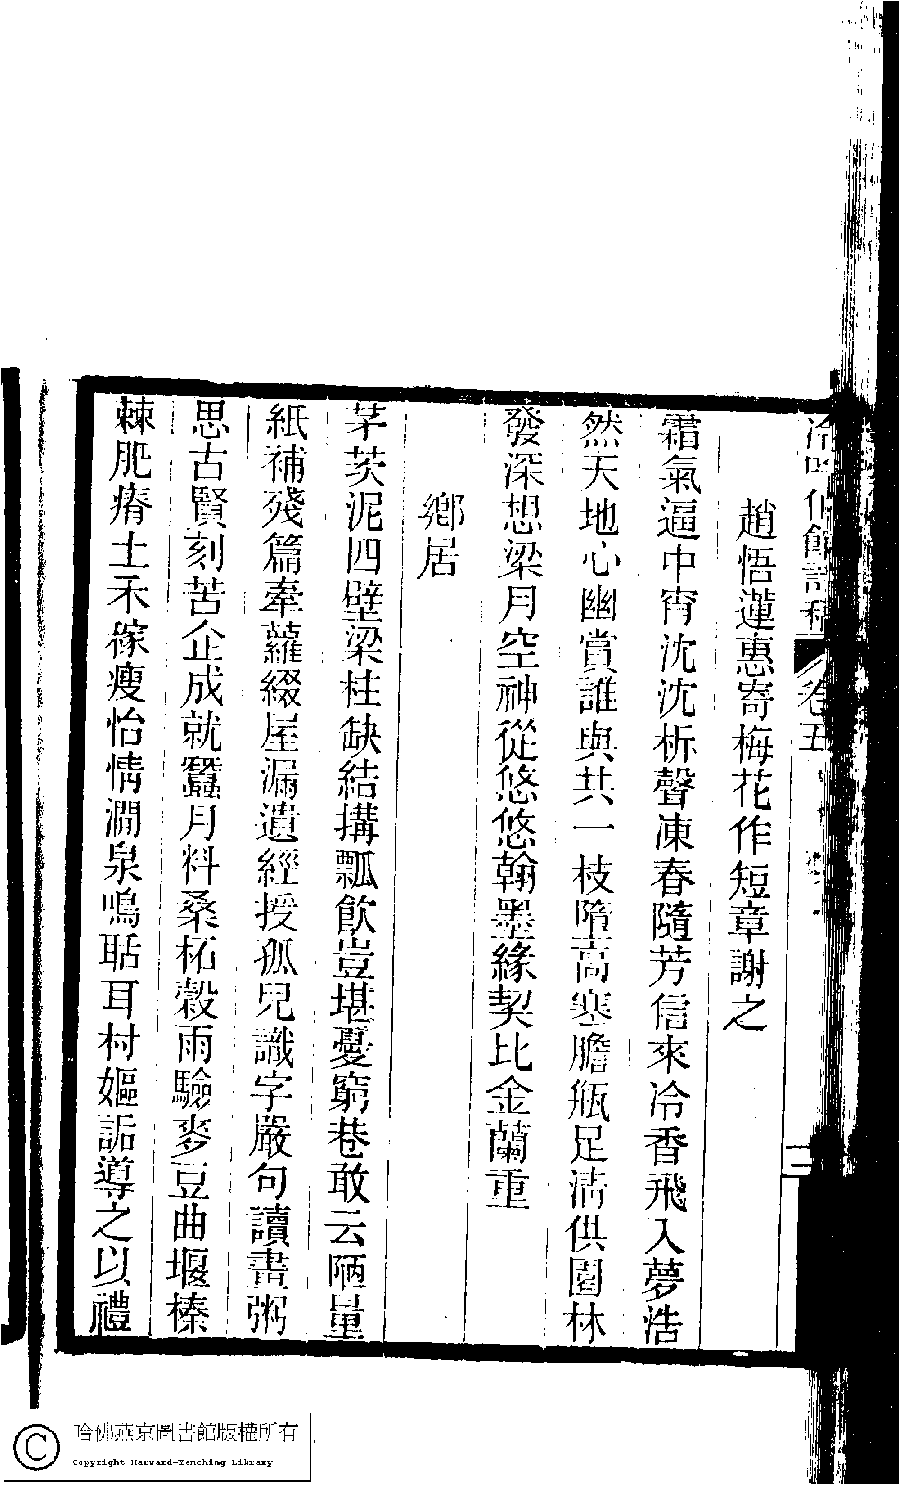 冷吟仙館詩稿 卷五 三
趙悟蓮惠寄梅花作短章謝之
霜氣逼中宵沈沈柝聲凍春隨芳信來冷香飛入夢浩
然天地心幽賞誰與共一枝隋高寒膽瓶足清供園林
發深想梁月空神從悠悠翰墨緣契比金蘭重
鄉居
茅茨泥四壁梁柱缺結搆瓢飲豈堪憂窮巷敢云陋量
紙補殘篇牽蘿綴屋漏遺經授孤兒識字嚴句讀書粥
思古賢刻苦企成就蠶月料桑柘穀雨驗麥豆曲堰榛
棘肥瘠土禾稼瘦怡情澗泉鳴聒耳村嫗詬導之以禮
哈佛燕京圖書館版權所有
Copyright Harvard-Yenching Library